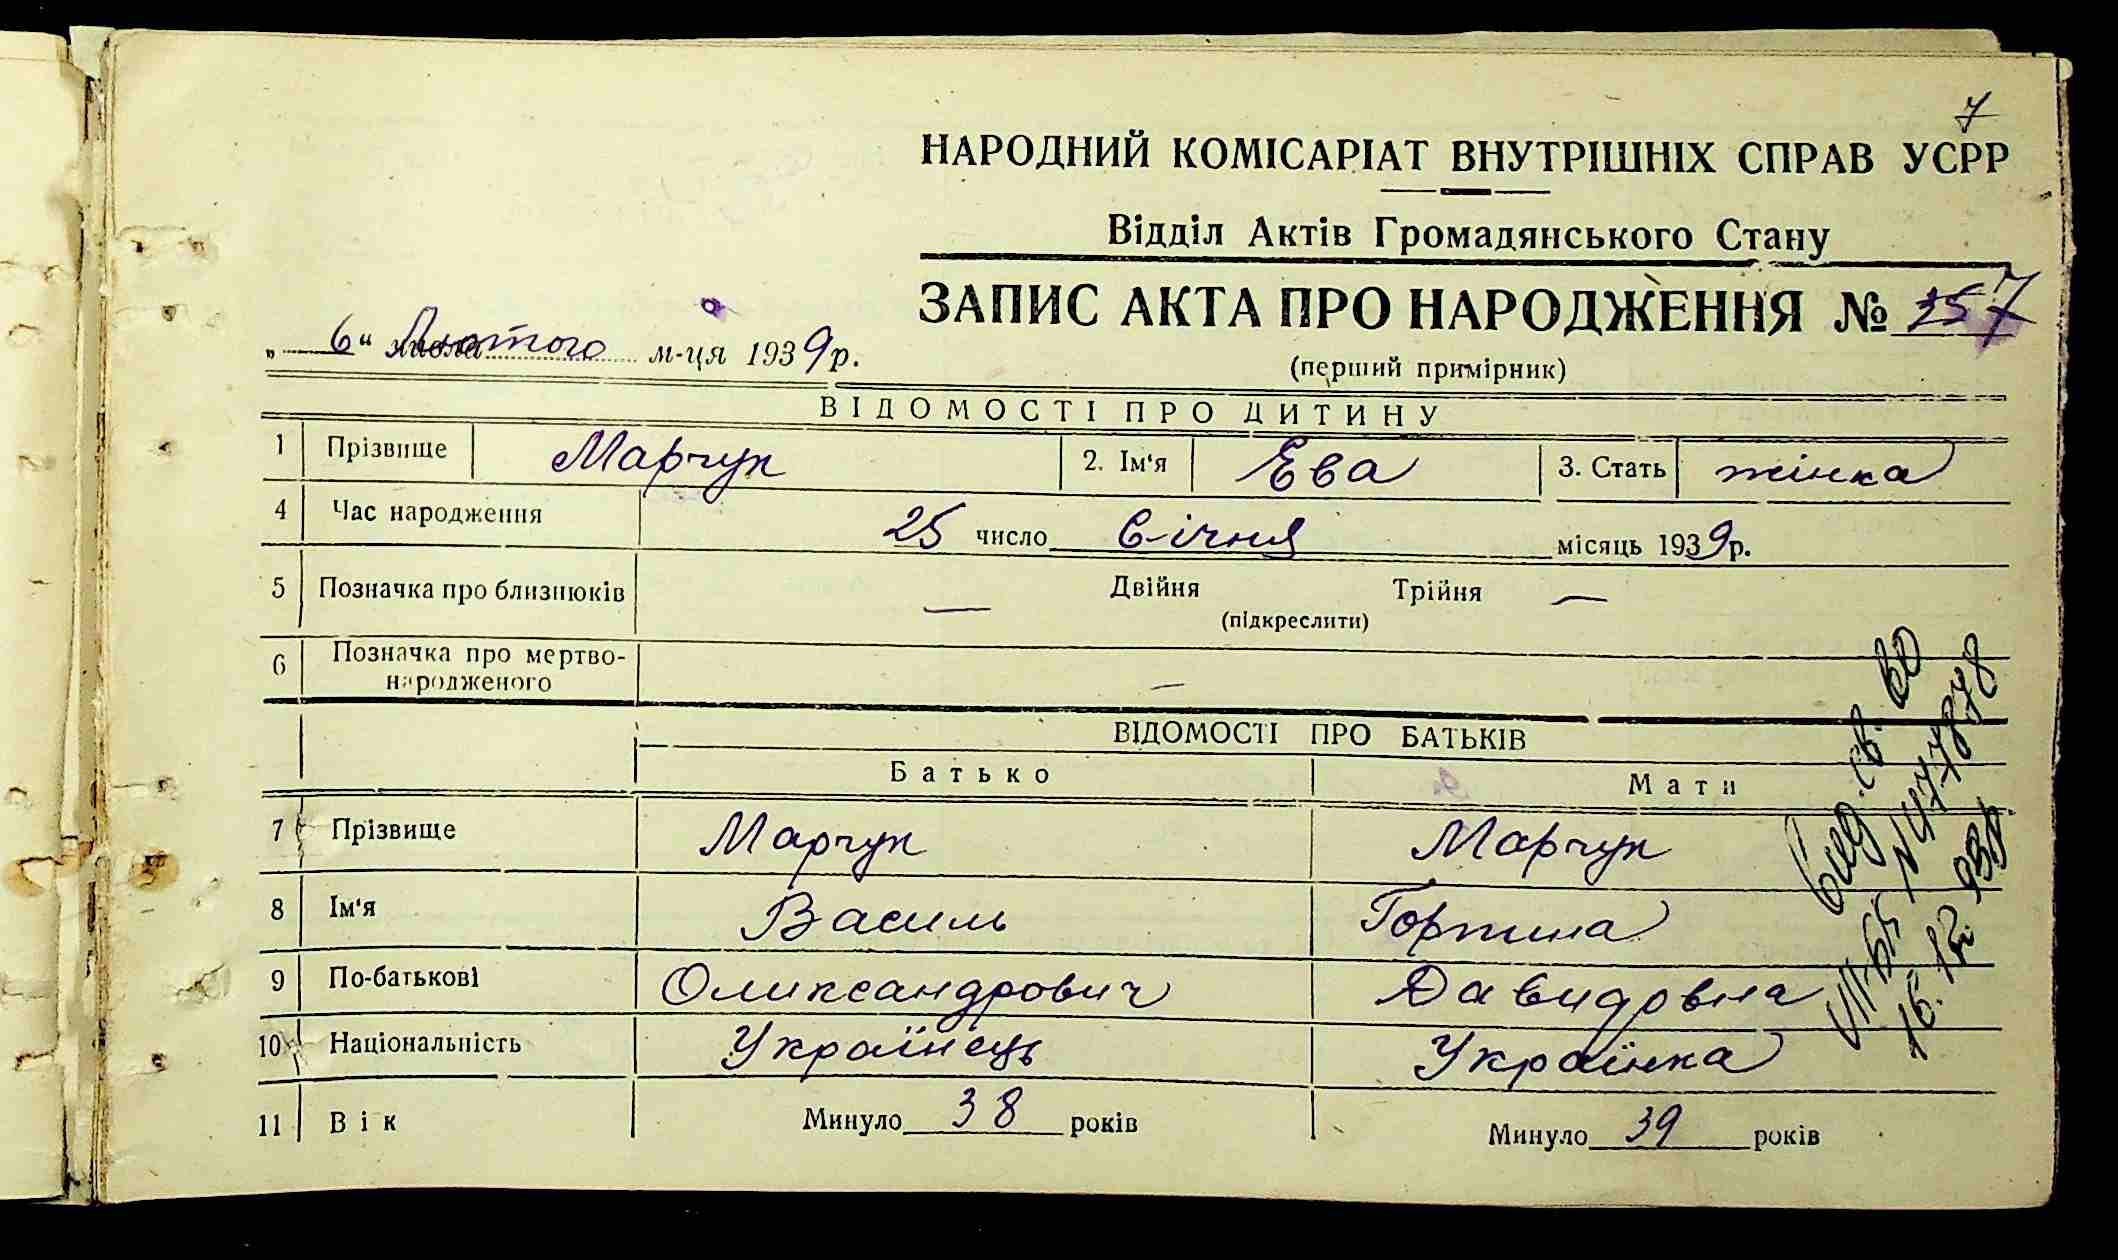 7
НАРОДНИЙ КОМІСАРІАТ ВНУТРІШНІХ СПРАВ УСРР
Відділ Актів Громадянського Стану
ЗАПИС АКТА ПРО НАРОДЖЕННЯ № 7
„6“ Лютого м-ця 1939р.
(перший примірник)
ВІДОМОСТІ ПРО ДИТИНУ
1 Прізвище Марчук 2. Ім'я Ева 3. Стать жінка
4 Час народження 25 число Січня місяць 1939р.
5 Позначка про близнюків — Двійня Трійня —
(підкреслити)
6 Позначка про мертво-
народженого —
ВІДОМОСТІ ПРО БАТЬКІВ
Батько Мати
7 Прізвище Марчук Марчук
8 Ім'я Василь Горпина
9 По-батькові Олександрович Давидовна
10 Національність Українець Українка
11 Вік Минуло 38 років Минуло 39 років